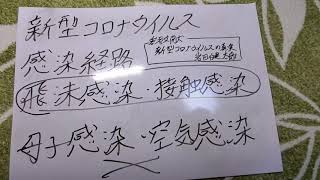 新型コロナウイルス
感染経路
新型コロナウイルスの真実
飛沫感染・接触感染
母子感染・空気感染